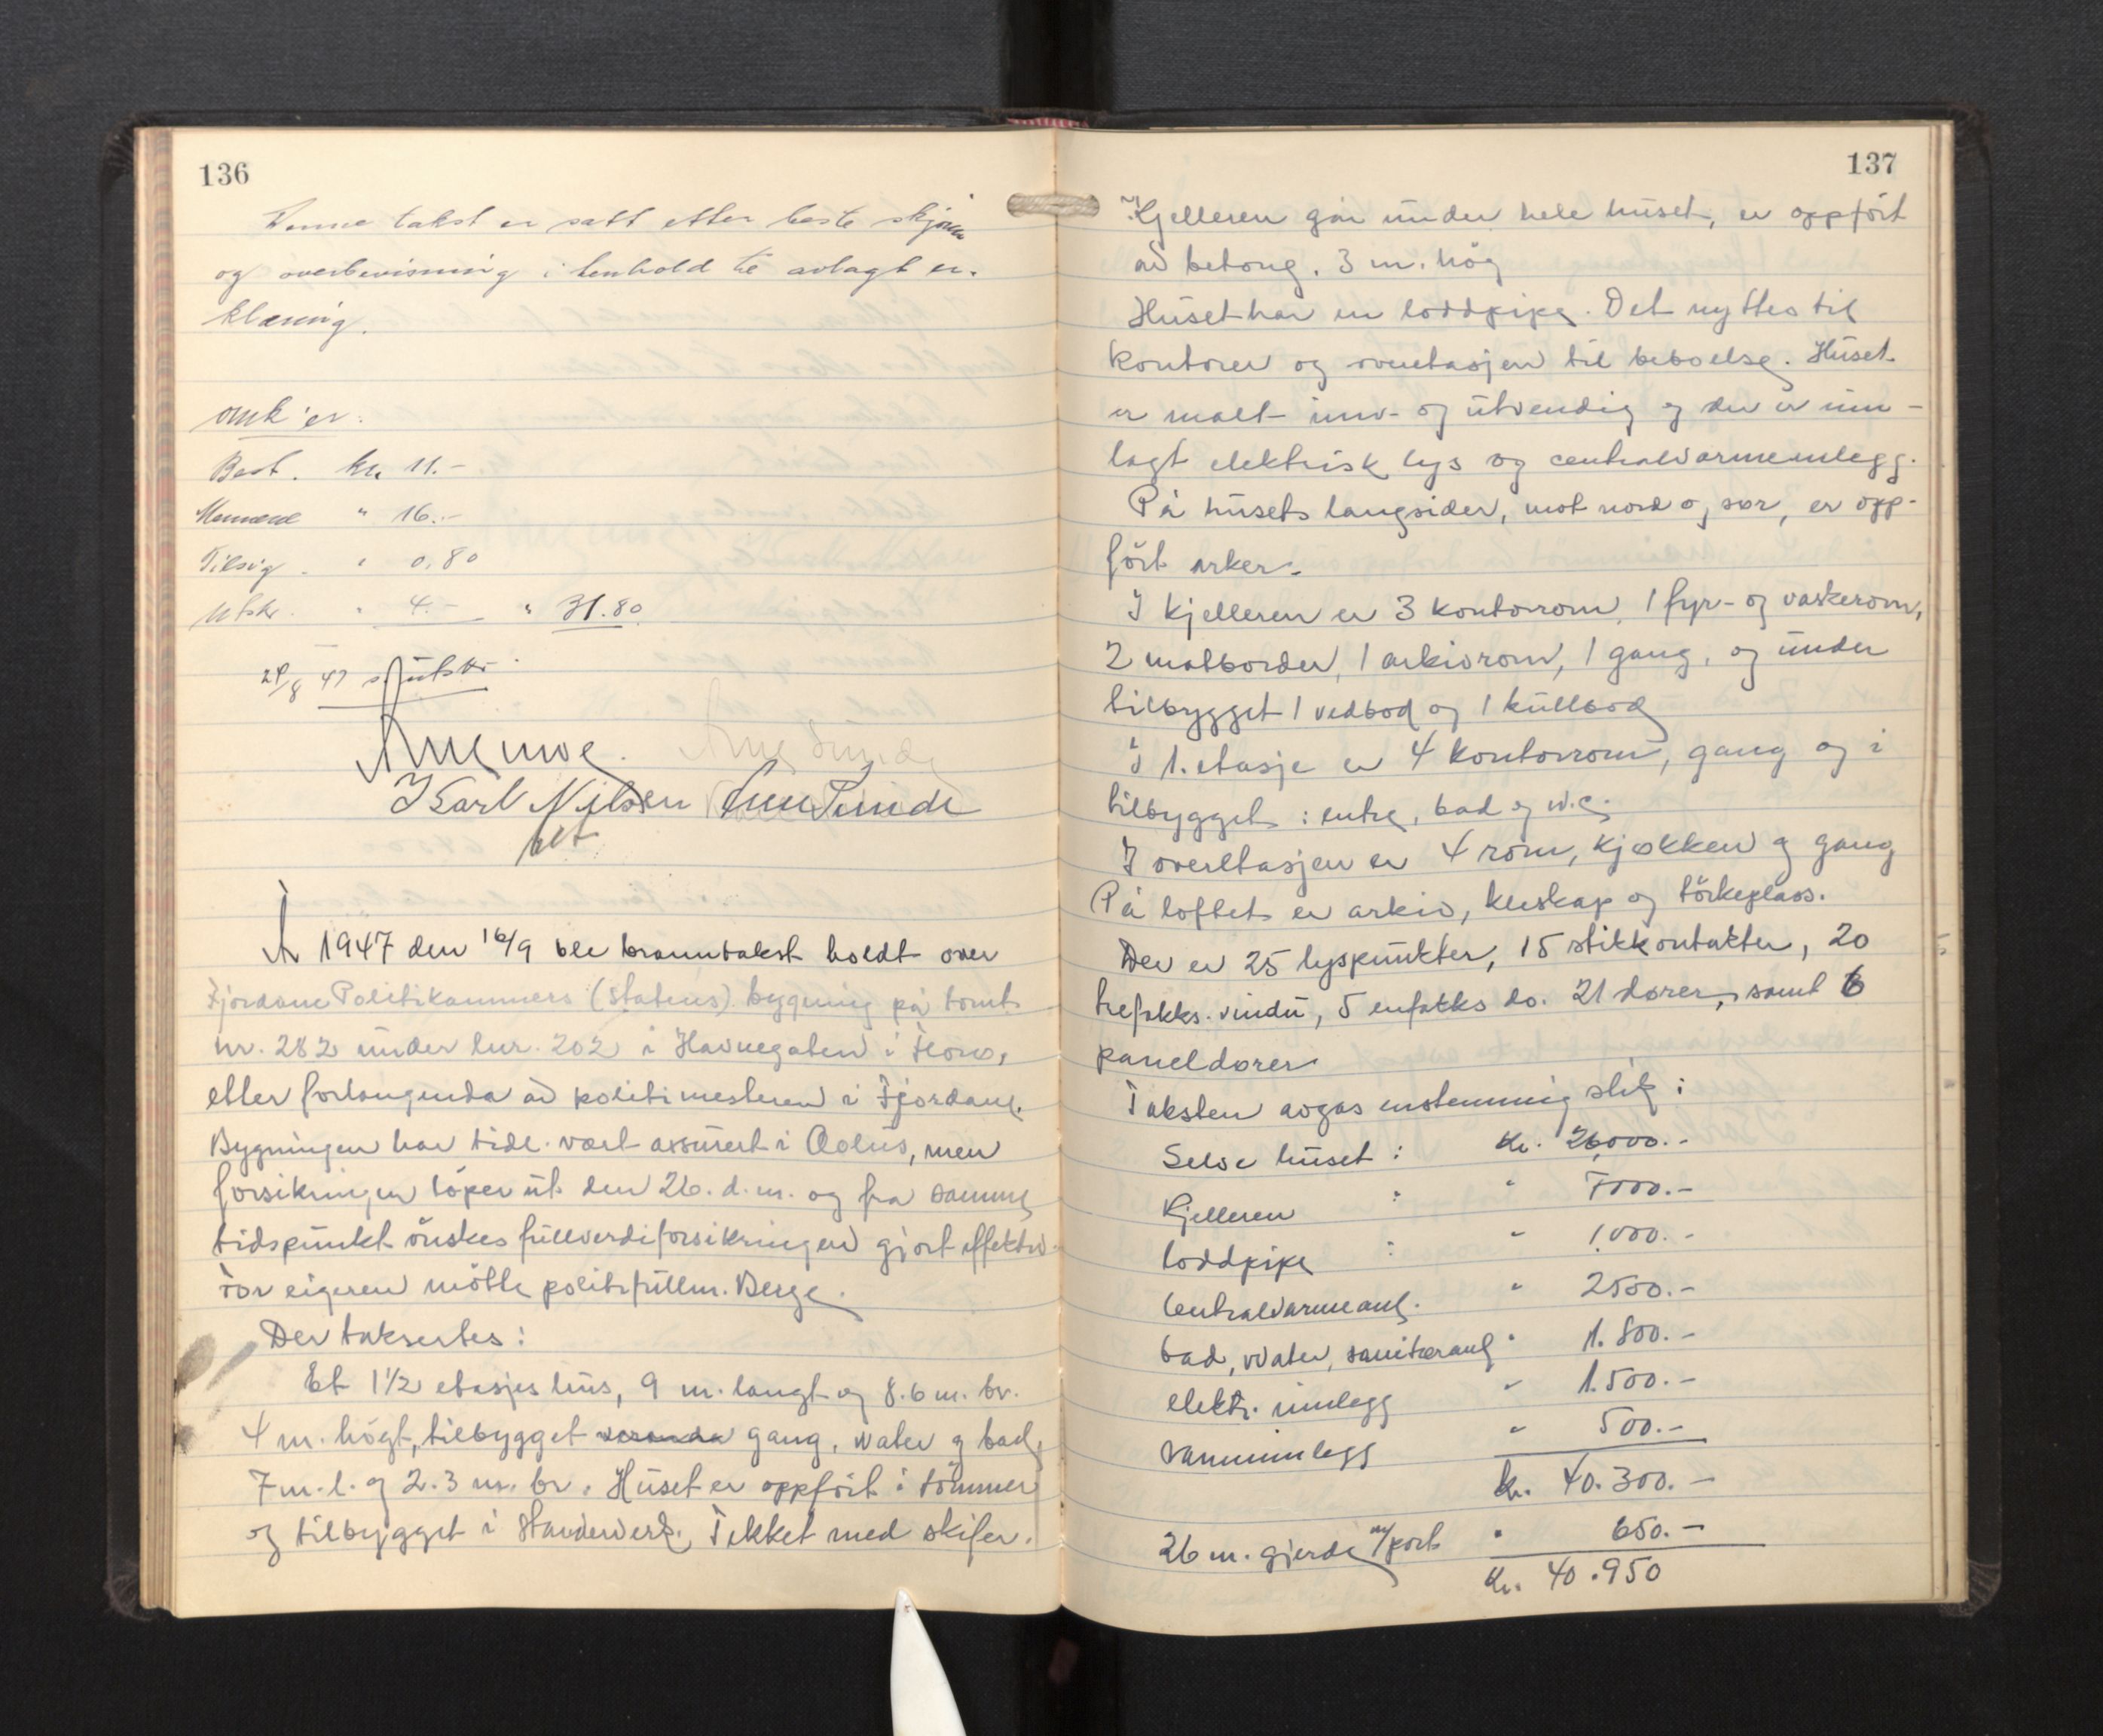 136
Denne takst er satt etter beste skjönn
og overbevisning i henhold til avlagt er-
klæring.
omk'er:
Best. kr. 11.-
Mennene " 16.-
Tilsig. " 0.80
Utskr. " 4.- " 31.80
29/8 47 utskr.
Arne Moe. Arne Sunde
J Karl Nilsen Arne Sunde
År 1947 den 16/9 ble branntakst holdt over
Fjordane Politikammers (statens) bygning på tomt
nr. 282 under lnr. 202 i Havnegaten i Florö,
etter forlangenda av politimesteren i Fjordane.
Bygningen har tidl. vært assurert i Æolus, men
forsikringen löper ut den 26. d.m. og fra samme
tidspunkt önskes fullverdiforsikringen gjort effektiv.
For eigeren mötte politifullm. Berge.
Der taksertes:
Et 1½ etasjes hus, 9 m. langt og 8.6 m. br.
4 m. högt, tilbygget veranda gang, water og bad,
7 m. l. og 2.3 m. br. Huset er oppfört i tömmer
og tilbygget i stavderverk. Tekket med skifer.
137
Kjelleren går under hele huset, er oppfört
av betong. 3 m. hög
Huset har en loddpipe. Det nyttes til
kontorer og ovenetasjen til beboelse. Huset
er malt inv- og utvendig og der er inn-
lagt elektrisk lys og centralvarmeinlegg.
På husets langsider, mot nord og sør, er opp-
fört arker.
I kjelleren er 3 kontorrom, 1 fyr- og vaskerom,
2 matborder, 1 arkivrom, 1 gang, og under
tilbygget 1 vedbod og 1 kullbod
I 1. etasje er 4 kontorrom, gang og i
tilbygget: entre, bad og w.c.
I overetasjen er 4 rom, kjøkken og gang
På loftet er arkiv, kleskap og törkeplass.
Der er 25 lyspunkter, 15 stikkontakter, 20
trefakks. vindu, 5 enfakks do. 21 dører, samt 6
paneldører.
Taksten avgas enstemmig slik:
Selve huset: Kr. 26,000.-
Kjelleren : " 7000.-
loddpipe : " 1.000.-
Centralvarmeanl. " 2500.-
bad, water, sanitæranl " 1.800.-
elektr. innlegg " 1.500.-
vanninnlegg " 500.-
kr. 40.300.-
26 m. gjerde m/port " 650.-
Kr. 40.950